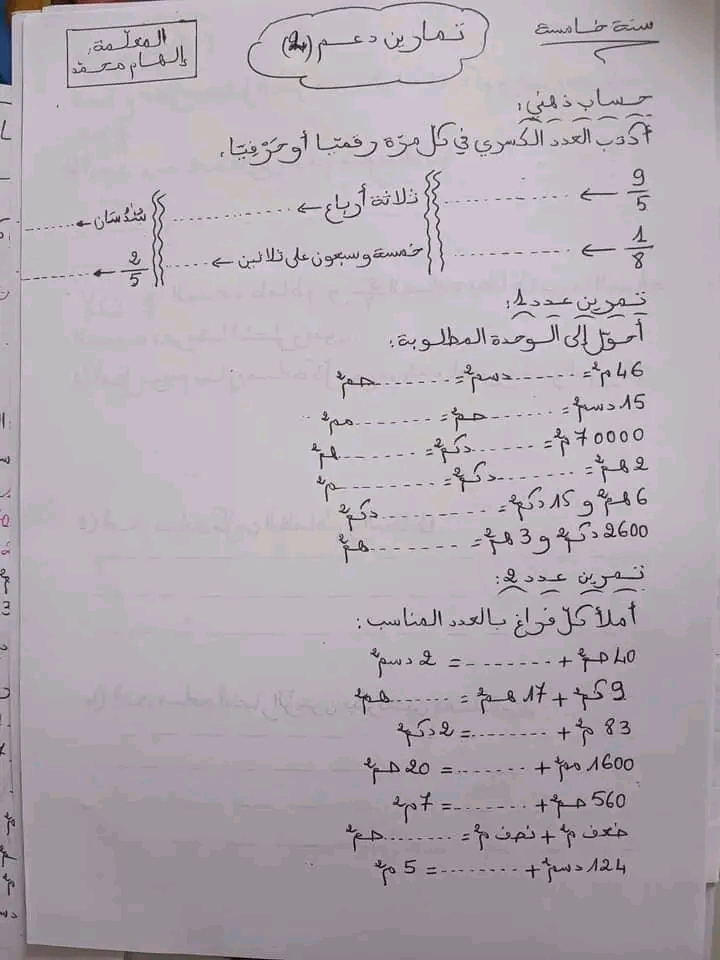 سنة خامسة
تمارين دعم (2)
المعلّمة:
إلهام محمّد
حساب ذهني:
أكتب العدد الكسري في كل مرّة رقميّا أو حرفيّا.
9/5 ← ........ ثلاثة أرباع ← ........ سُدُسان ← ........
1/8 ← ........ خمسة وسبعون على ثلاثين ← ........ 2/5 ← ........
تمرين عدد 1:
أحوّل إلى الوحدة المطلوبة:
46م² = ........ دسم² = ........ صم²
15 دسم² = ........ صم² = ........ مم²
70000 م² = ........ دكم² = ........ هم²
2 هم² = ........ دكم² = ........ م²
6 هم² و 15 دكم² = ........ دكم²
2600 دكم² و 3 هم² = ........ هم²
تمرين عدد 2:
أملأ كلّ فراغ بالعدد المناسب:
40 صم² + ........ = 2 دسم²
9 كم² + 17 هم² = ........ هم²
83 م² + ........ = 2 دكم²
1600 مم² + ........ = 20 صم²
560 صم² + ........ = 7 م²
ضعف م² + نصف م² = ........ صم²
124 دسم² + ........ = 5 م²